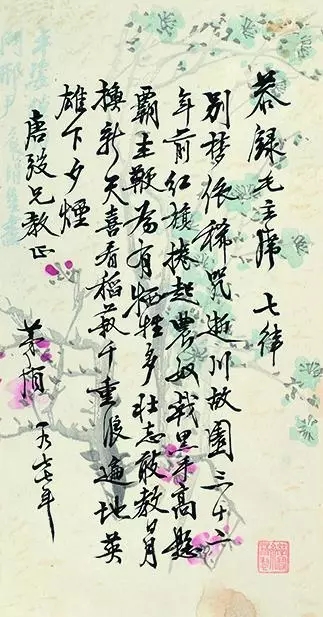 恭録毛主席 七律
别夢依稀咒逝川故園三十二
年前红旗捲起農奴戟黑手高懸
霸主鞭為有牺牲多壮志敢教日月
換新天喜看稻菽千重浪遍地英
雄下夕煙
唐弢兄教正
茅盾